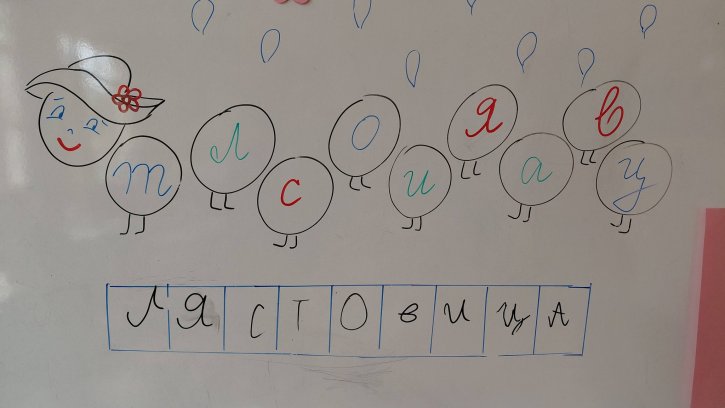 т л с о и я а в ц
ЛЯСТОВИЦА